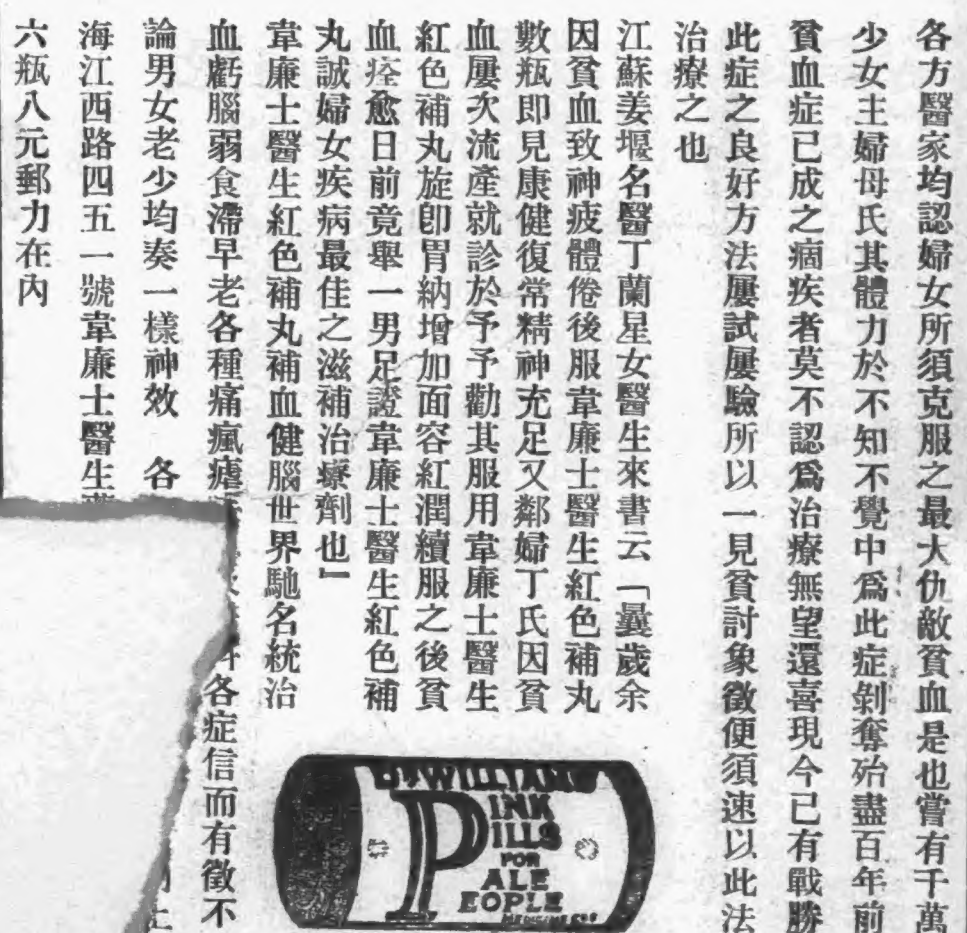 各方醫家均認婦女所須克服之最大仇敵貧血是也嘗有千萬
少女主婦母氏其體力於不知不覺中爲此症剝奪殆盡百年前
貧血症已成之痼疾者莫不認爲治療無望還喜現今已有戰勝
此症之良好方法屢試屢驗所以一見貧討象徵便須速以此法
治療之也
江蘇姜堰名醫丁蘭星女醫生來書云「曩歲余
因貧血致神疲體倦後服韋廉士醫生紅色補丸
數瓶即見康健復常精神充足又鄰婦丁氏因貧
血屢次流產就診於予予勸其服用韋廉士醫生
紅色補丸旋卽胃納增加面容紅潤續服之後貧
血痊愈日前竟舉一男足證韋廉士醫生紅色補
丸誠婦女疾病最佳之滋補治療劑也」
韋廉士醫生紅色補丸補血健腦世界馳名統治
血虧腦弱食滯早老各種痛瘋瘧 各症信而有徵不
論男女老少均奏一樣神效 各
海江西路四五一號韋廉士醫生
六瓶八元郵力在內
DR WILLIAMS
PINK
PILLS
FOR
PALE
PEOPLE